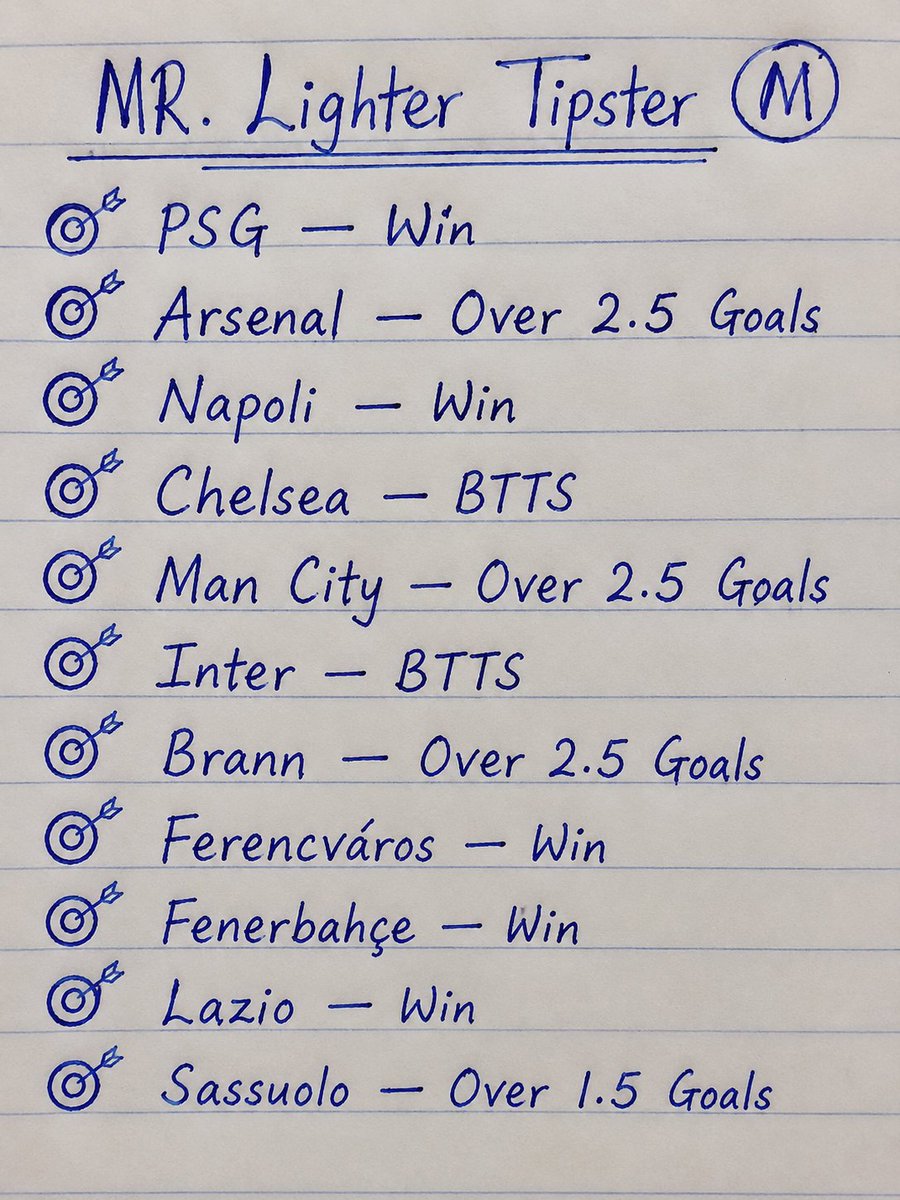 MR. Lighter Tipster M
PSG — Win
Arsenal — Over 2.5 Goals
Napoli — Win
Chelsea — BTTS
Man City — Over 2.5 Goals
Inter — BTTS
Brann — Over 2.5 Goals
Ferencváros — Win
Fenerbahçe — Win
Lazio — Win
Sassuolo — Over 1.5 Goals